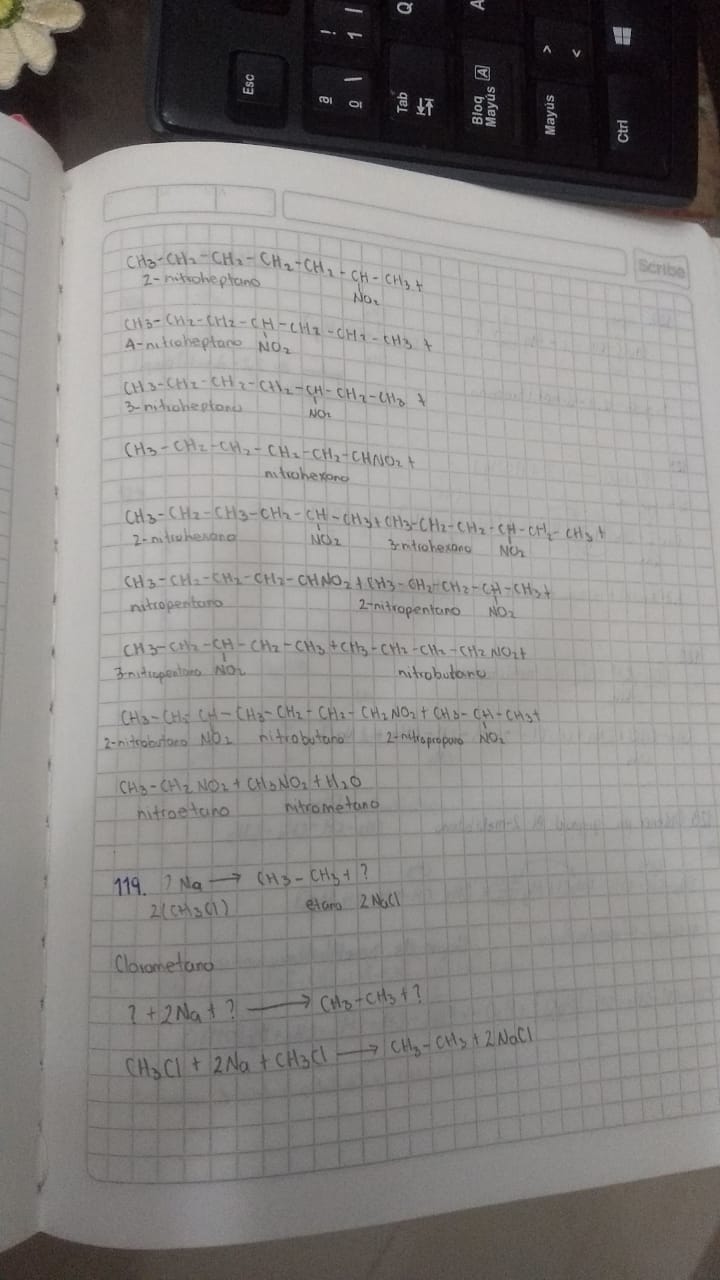 Esc
! 1 |
ª º \
Q
Tab
A
Bloq Mayús A
> <
Mayús
Ctrl
Scribe
CH3-CH2-CH2-CH2-CH2-CH-CH3+
2-nitroheptano NO2
CH3-CH2-CH2-CH-CH2-CH2-CH3 +
4-nitroheptano NO2
CH3-CH2-CH2-CH2-CH-CH2-CH3 +
3-nitroheptano NO2
CH3-CH2-CH2-CH2-CH2-CHNO2+
nitrohexano
CH3-CH2-CH3-CH2-CH-CH3+CH3-CH2-CH2-CH-CH2-CH3+
2-nitrohexano NO2 3-nitrohexano NO2
CH3-CH2-CH2-CH2-CHNO2+CH3-CH2-CH2-CH-CH3+
nitropentano 2-nitropentano NO2
CH3-CH2-CH-CH2-CH3+CH3-CH2-CH2-CH2NO2+
3-nitropentano NO2 nitrobutano
CH3-CH2 CH-CH3-CH2-CH2-CH2NO2+CH3-CH-CH3+
2-nitrobutano NO2 nitrobutano 2-nitropropano NO2
CH3-CH2NO2+CH3NO2+H2O
nitroetano nitrometano
119. ? Na → CH3-CH3+ ?
2(CH3Cl) etano 2NaCl
Clorometano
? + 2Na + ? → CH3-CH3+?
CH3Cl + 2Na + CH3Cl → CH3-CH3+2NaCl